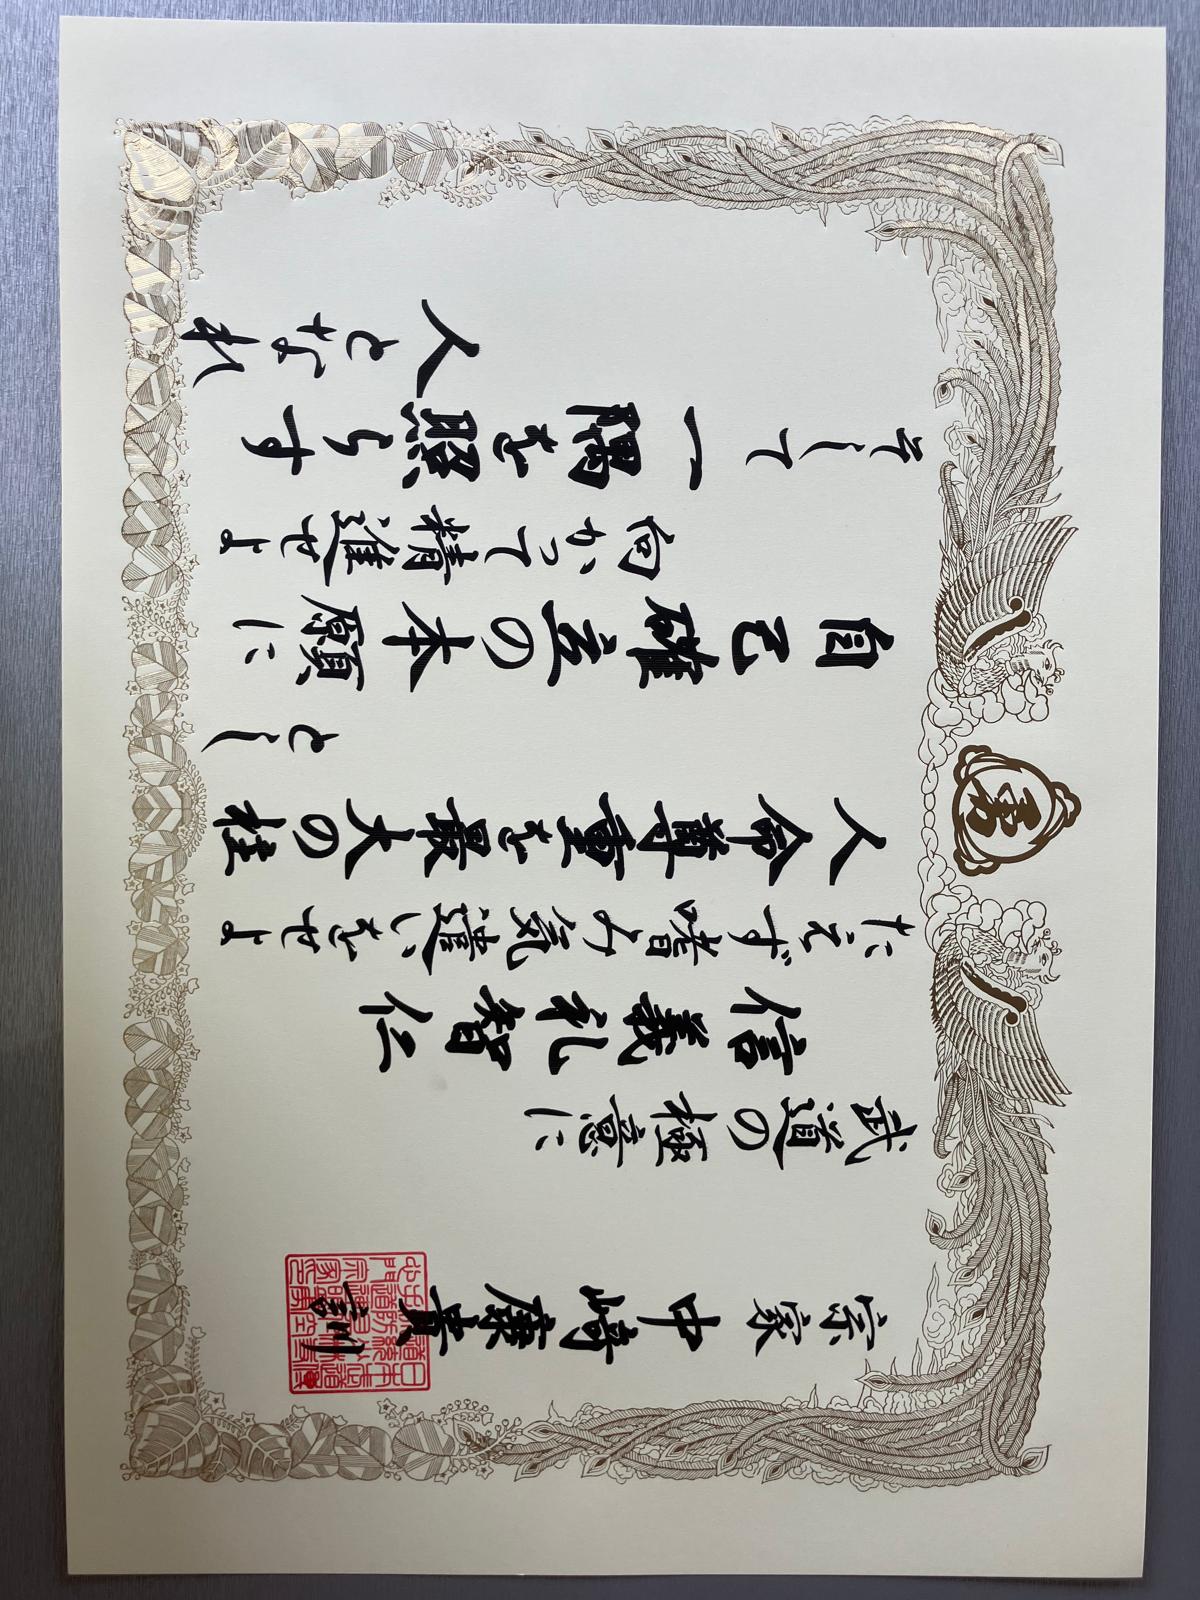 宗家 中崎康貴 訓
武道の極意に
信義礼智仁
たえず嗜み気遣いをせよ
人命尊重を最大の柱
とし
自己確立の本願に
向かって精進せよ
そして一隅を照らす
人となれ